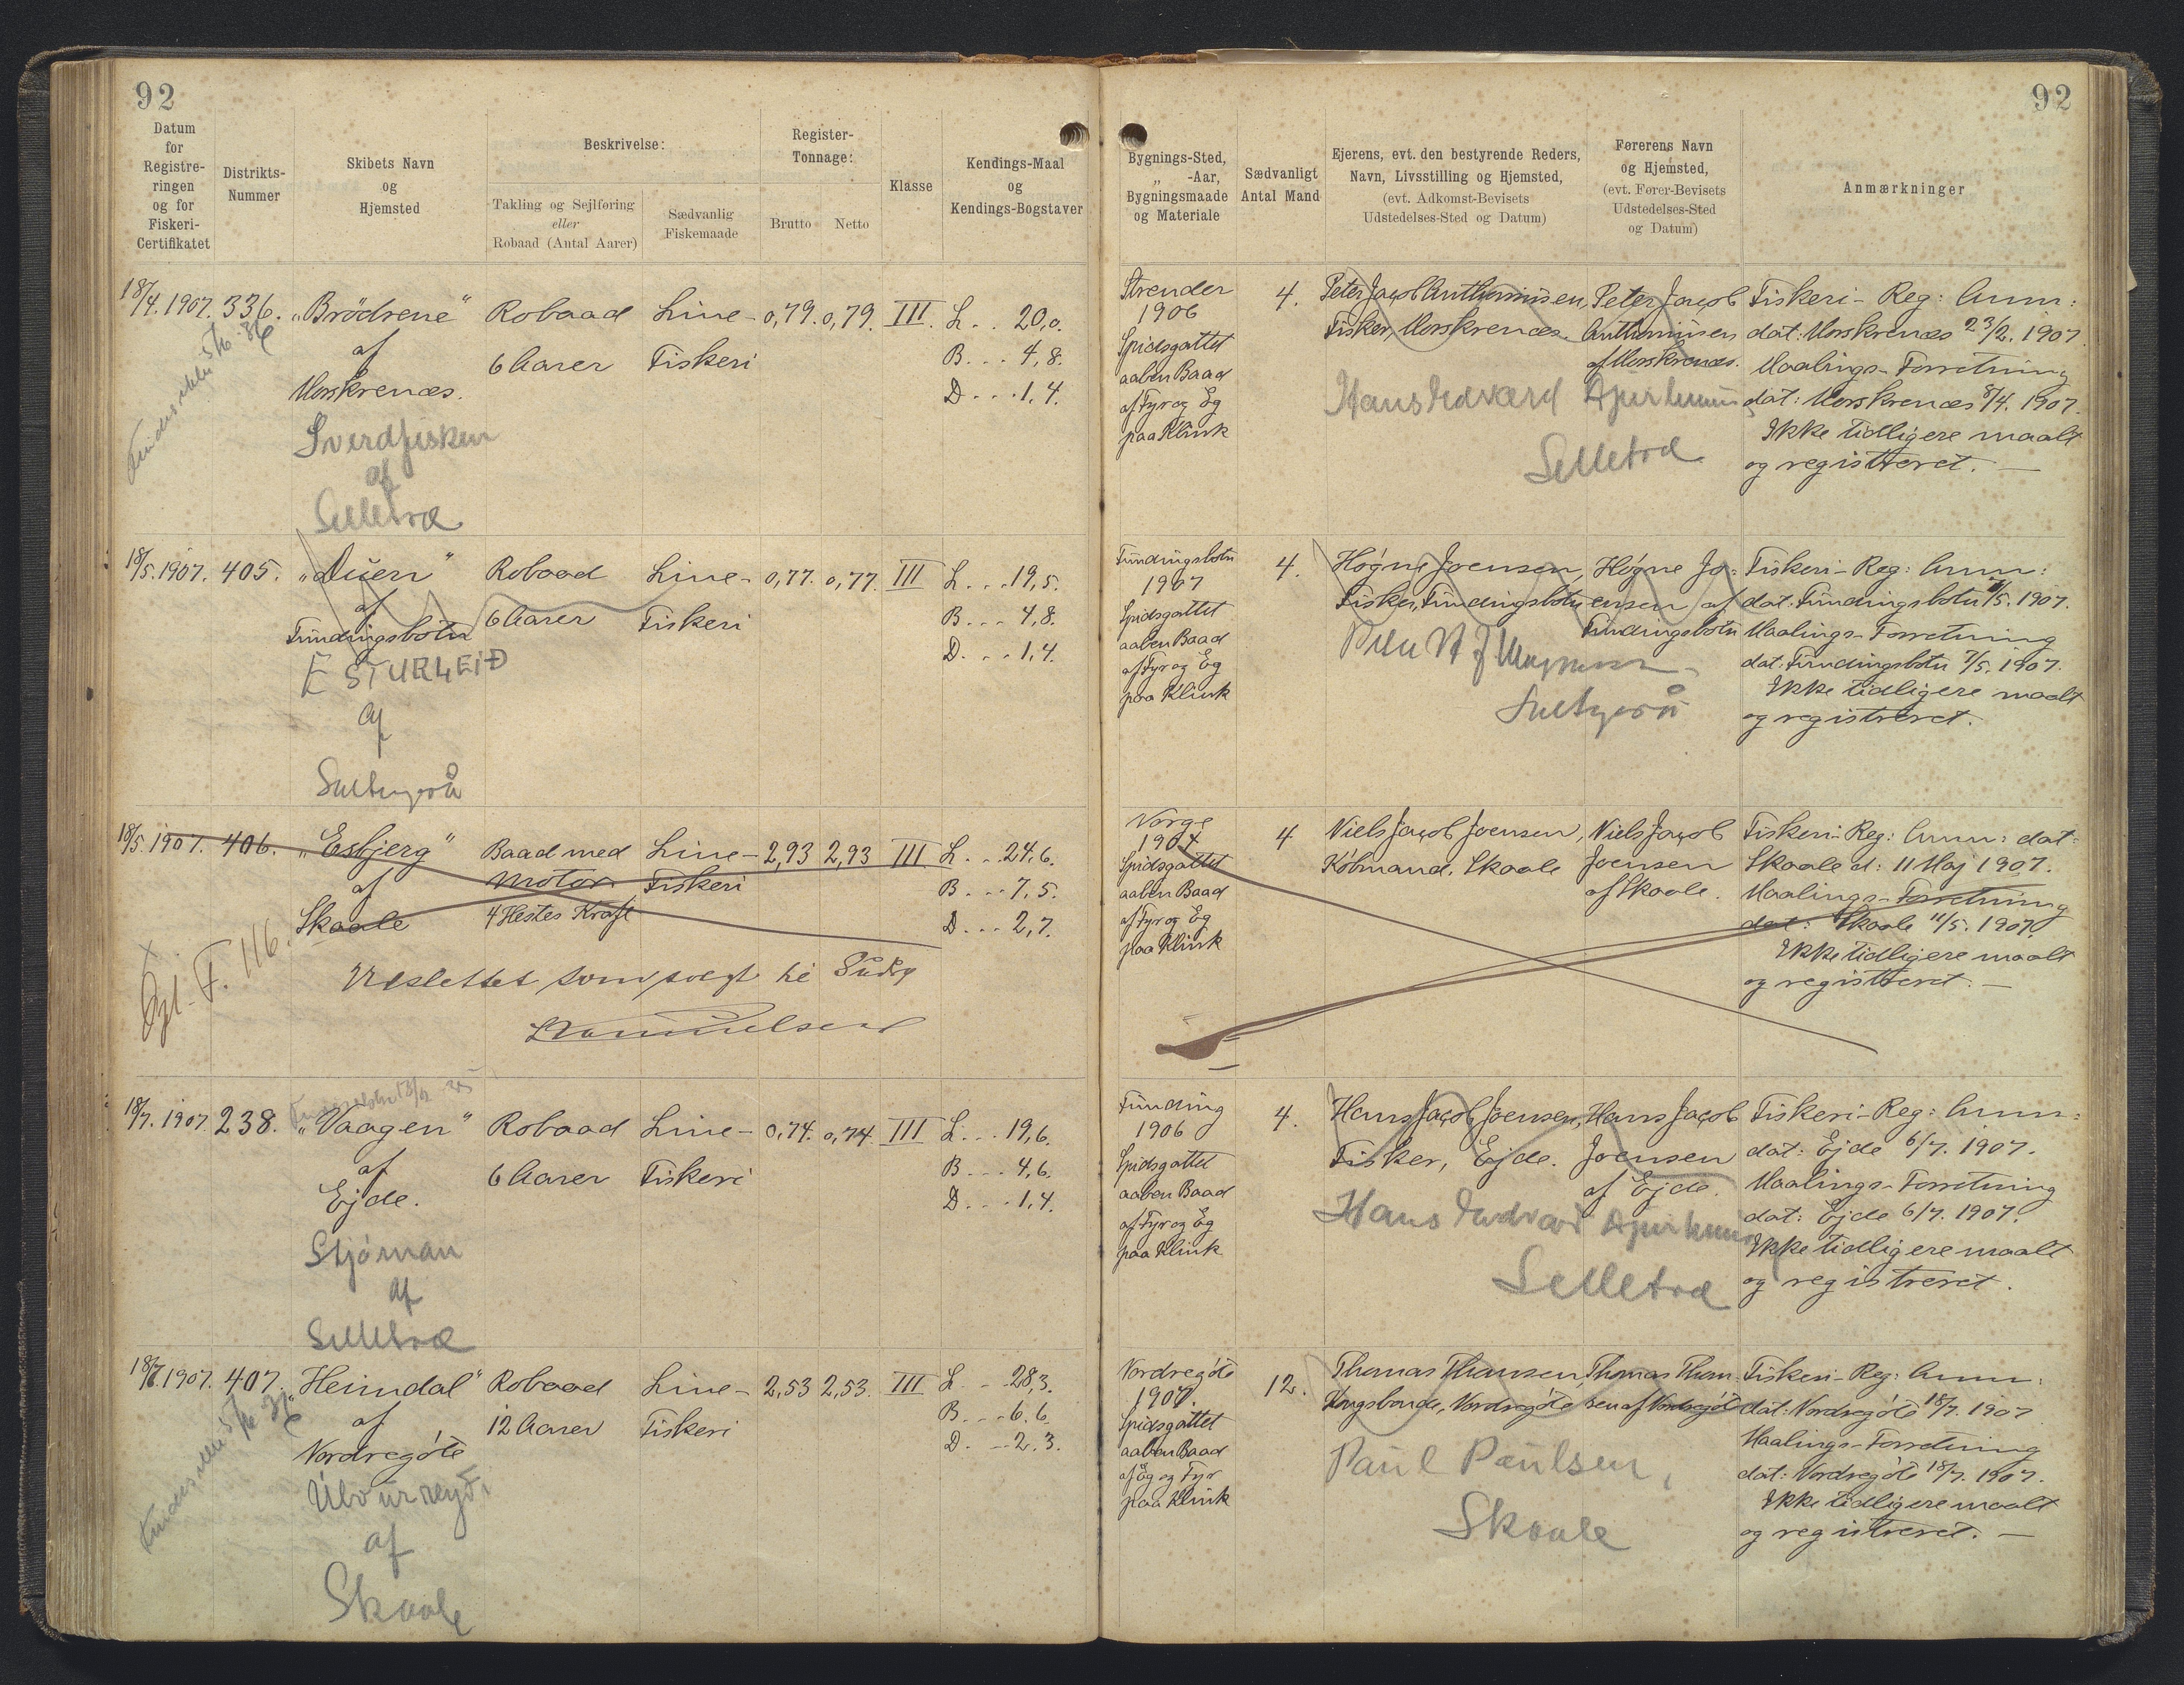 92
Datum
for
Registre-
ringen
og for
Fiskeri-
Certifikatet
Distrikts-
Nummer
Skibets Navn
og
Hjemsted
Beskrivelse:
Takling og Sejlføring
eller
Robaad (Antal Aarer)
Sædvanlig
Fiskemaade
Register-
Tonnage:
Brutto Netto
Klasse
Kendings-Maal
og
Kendings-Bogstaver
18/4.1907. 336. „Brödrene" Robaad Line- 0,79. 0,79. III. L.. 20,0.
af 6 Aarer Fiskeri B... 4,8.
Morskrenæs. D...1,4.
Sverdfisken
af
Selletræ
18/5.1907. 405. „Duen" Robaad Line- 0,77. 0,77. III L...19,5.
af 6 Aarer Fiskeri B... 4,8.
Fundingsbotn D...1,4.
ESTURLEIÐ
af
18/5.1907. 406. „Esbjerg" Baad med Line- 2,93 2,93 III L...24,6.
af Motor Fiskeri B...7,5.
Skaale 4 Hestes Kraft D...2,7.
F. 116.
Udslettet som solgt til
18/7.1907. 238. „Vaagen" Robaad Line- 0,74. 0,74. III L...19,6.
af 6 Aarer Fiskeri B...4,6.
Ejde. D...1,4.
Stjórnan
af
Selletræ
18/7.1907. 407. „Heimdal" Robaad Line- 2,53 2,53. III L...28,3.
af 12 Aarer Fiskeri B...6,6.
Nordregóte D...2,3.
af
Skaale
92
Bygnings-Sted,
„ -Aar,
Bygningsmaade
og Materiale
Sædvanligt
Antal Mand
Ejerens, evt. den bestyrende Reders,
Navn, Livsstilling og Hjemsted,
(evt. Adkomst-Bevisets
Udstedelses-Sted og Datum)
Førerens Navn
og Hjemsted,
(evt. Fører-Bevisets
Udstedelses-Sted
og Datum)
Anmærkninger
Strender 4. Peter Jacob Anthoniusen, Peter Jacob Fiskeri-Reg: Anm:
1906 Fisker, Morskrenæs. Anthoniusen dat: Morskrenæs 23/2. 1907
Spidsgattet af Morskrenæs. Maalings-Forretning
aaben Baad dat: Morskrenæs 8/4. 1907.
af Fyr og Eg Ikke tidligere maalt
paa Klink og registreret.
Selletræ
Fundingsbotn 4. Høgne Joensen, Høgne Jo- Fiskeri-Reg: Anm:
1907 Fisker, Fundingsbotn ensen af dat: Fundingsbotn /5. 1907.
Spidsgattet Fundingsbotn Maalings-Forretning
aaben Baad dat: Fundingsbotn 7/5. 1907.
af Fyr og Eg Ikke tidligere maalt
paa Klink og registreret.
Norge 4 Niels Jacob Joensen, Niels Jacob Fiskeri-Reg: Anm: dat:
1904 Købmand, Skaale Joensen Skaale d: 11 Maj 1907.
Spidsgattet af Skaale. Maalings-Forretning
aaben Baad dat: Skaale 11/5. 1907.
af Fyr og Eg Ikke tidligere maalt
paa Klink og registreret.
Funding 4. Hans Jacob Joensen, Hans Jacob Fiskeri-Reg: Anm:
1906 Fisker, Ejde. Joensen dat: Ejde 6/7. 1907.
Spidsgattet af Ejde. Maalings-Forretning
aaben Baad dat: Ejde 6/7. 1907.
af Fyr og Eg Ikke tidligere maalt
paa Klink og registreret.
Selletræ
Nordregóte 12. Thomas Thomsen, Thomas Thom- Fiskeri-Reg: Anm:
1907. Kongsbonde, Nordregóte sen af Nordregóte dat: Nordregóte 18/7. 1907
Spidsgattet Maalings-Forretning
aaben Baad dat: Nordregóte 18/7. 1907.
af Eg og Fyr Ikke tidligere maalt
paa Klink og registreret.
Paul Paulsen,
Skaale